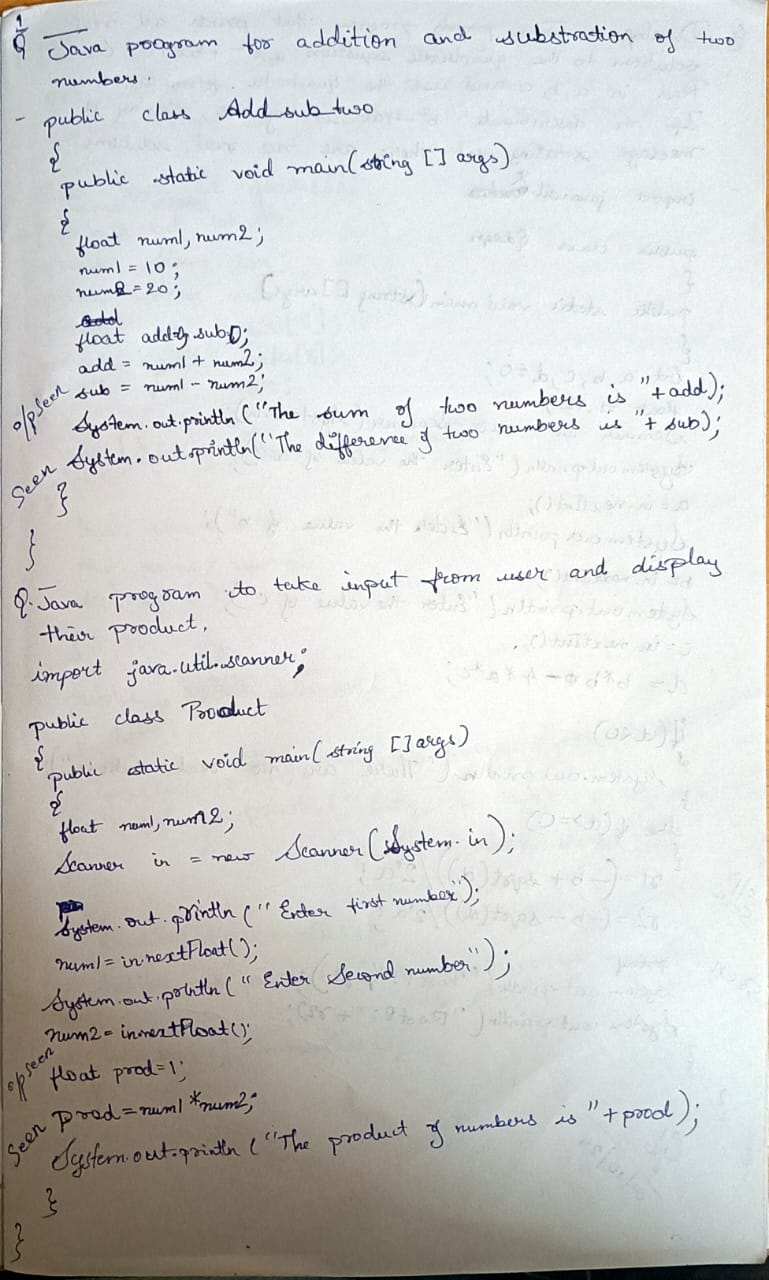 1
Q Java program for addition and substraction of two
numbers.
- public class Add_sub_two
{
public static void main(string [] args)
{
float num1, num2;
num1 = 10;
num2 = 20;
add
float add, sub;
add = num1 + num2;
o/p seen sub = num1 - num2;
System.out.println("The sum of two numbers is "+add);
Seen System.out.println("The difference of two numbers is "+ sub);
}
}
Q. Java program to take input from user and display
their product.
import java.util.scanner;
public class Product
{
public static void main(string []args)
{
float num1, num2;
Scanner in = new Scanner(System.in);
System.out.println (" Enter first number");
num1 = in.nextFloat();
System.out.println (" Enter Second number");
num2 = in.nextFloat();
o/p seen float prod=1;
Seen prod=num1 *num2;
System.out.println ("The product of numbers is "+prod);
}
}